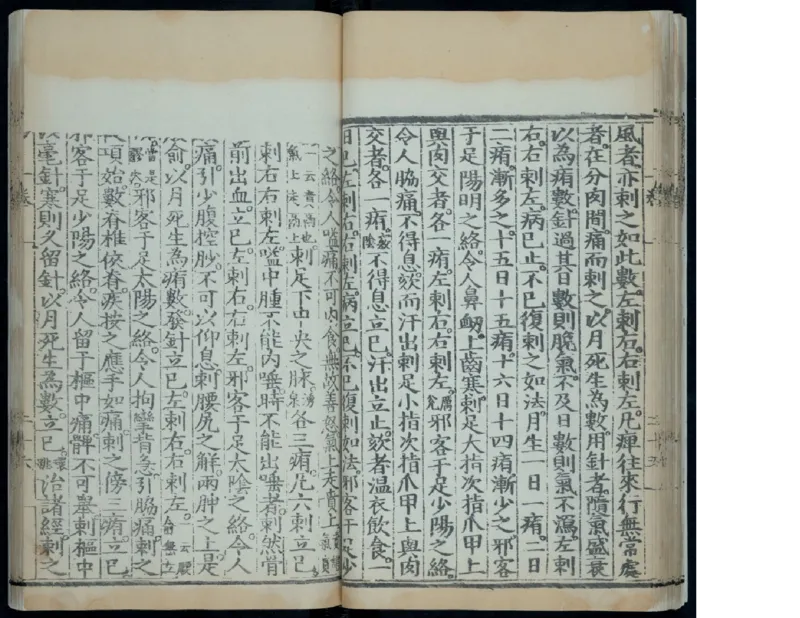 風者亦刺之如此數左刺右右刺左凡痺往來行無常處
者在分肉間痛而刺之以月死生為數用針者隨氣盛衰
以為痏數針過其日數則脫氣不及日數則氣不瀉左刺
右右刺左病已止不已復刺之如法月生一日一痏二日
二痏漸多之十五日十五痏十六日十四痏漸少之邪客
于足陽明之絡令人鼻衂上齒寒刺足大指次指爪甲上
與肉交者各一痏左刺右右刺左厲兌邪客于足少陽之絡
令人脇痛不得息欬而汗出刺足小指次指爪甲上與肉
交者各一痏竅陰不得息立已汗出立止欬者温衣飲食一
日已左刺右右刺左病立已不已復刺如法邪客于足少
之絡令人嗌痛不可內食無故善怒氣上走賁上
一云賁鬲也氣上走鬲上刺足下中央之脉湧泉各三痏凡六刺立已
刺右右刺左嗌中腫不能內唾時不能出唾者刺然骨
前出血立已左刺右右刺左邪客于足太陰之絡令人
痛引少腹控䏚不可以仰息刺腰尻之解兩胛之上是
俞以月死生為痏數發針立已左刺右右刺左
邪客于足太陽之絡令人拘攣背急引脇痛刺之
項始數脊椎俠脊疾按之應手如痛刺之傍三痏立已
邪客于足少陽之絡令人留于樞中痛髀不可舉刺樞中
毫針寒則久留針以月死生為數立已環跳治諸經刺之